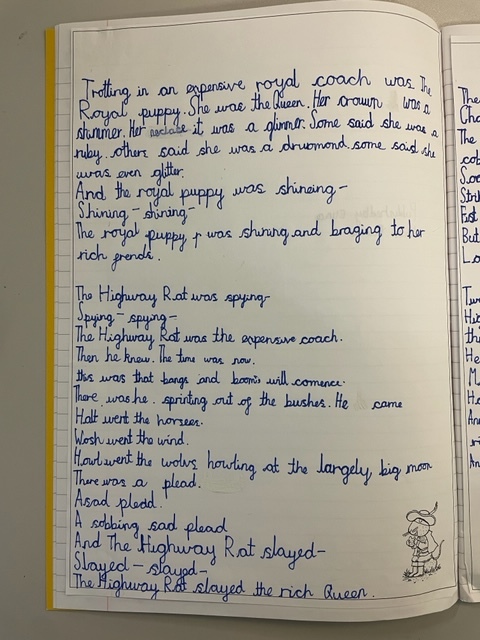 Trotting in an expensive royal coach was the
Royal puppy. She was the Queen. Her crown was a
shimmer. Her necklace it was a glimmer. Some said she was a
ruby. others said she was a druomond some said she
was even glitter.
And the royal puppy was shineing-
Shining - shining-
The royal puppy was shining and braging to her
rich frends.
The Highway Rat was spying-
Spying - spying-
The Highway Rat was the expensive coach.
Then he knew. The time was now.
this was that bangs and booms will comence.
There was he. sprinting out of the bushes. He came
Halt went the horses.
Wosh went the wind.
Howl went the wolvs howling at the largely, big moon
There was a plead.
A sad pledd.
A sobbing sad plead
And The Highway Rat slayed-
Slayed - slayed-
The Highway Rat slayed the rich Queen.
The
The
Sao
Stri
Fast
But
Lo
Tw
Hi
the
He
M
Ho
An
An